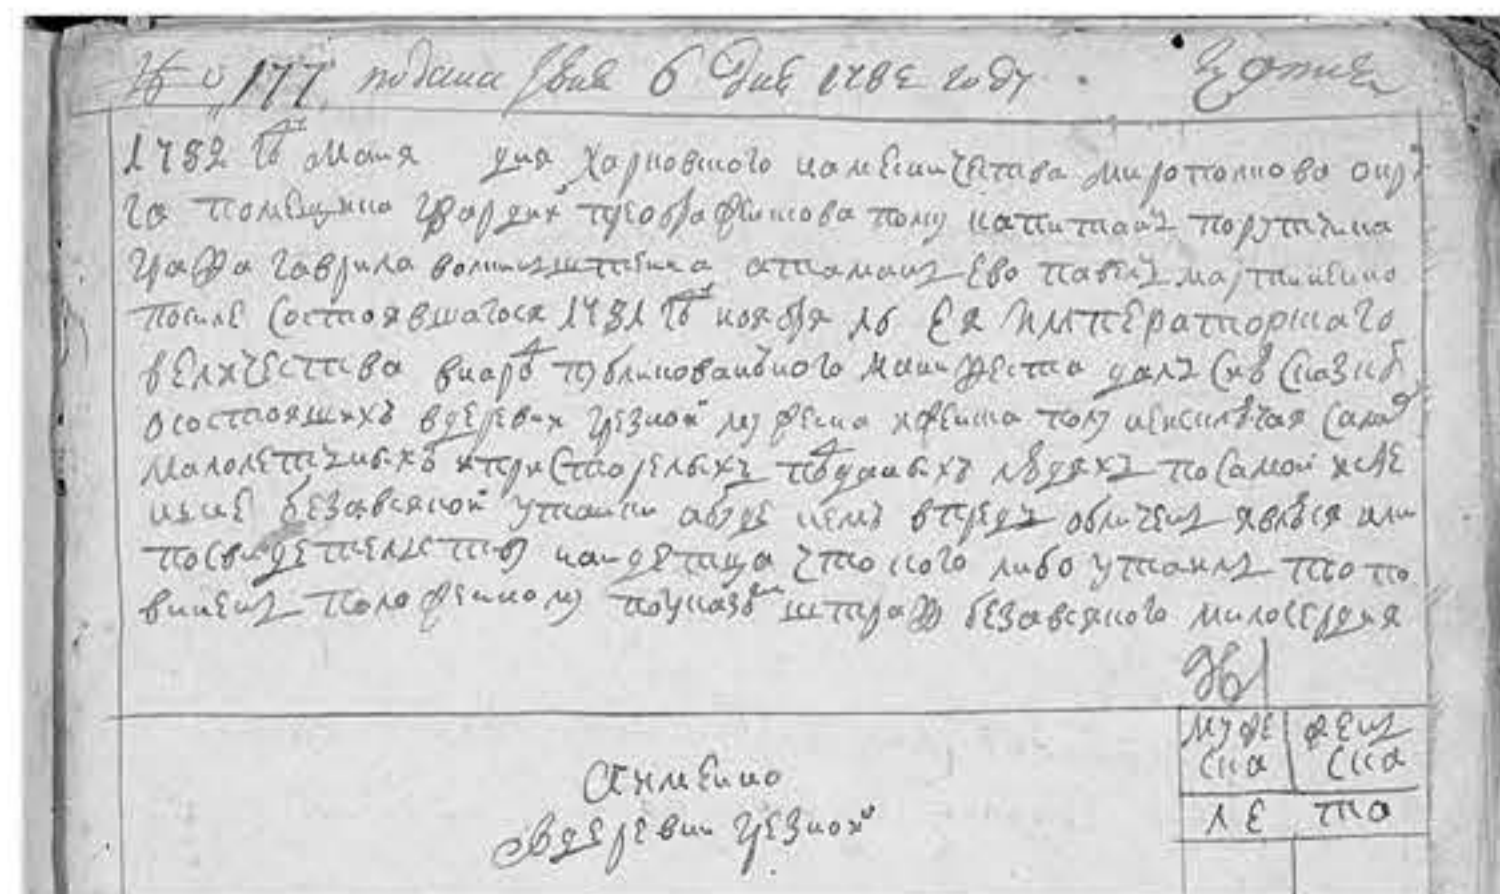 177 подана 6 1782 году
1782 году Мая дня Харковского наместничества мирополкова окру
га помещика гвардии преображенскова полку капитанъ порутчика
графа гаврила атаманъ ево павелъ мартиненко
после состоявшагося 1781 году ноября 16 Ея Императорскаго
величества публикованного манифеста далъ сию сказку
осостоящихъ вдеревни грезной мужеска иженска полу неисключая
малолетныхъ ипристарелыхъ людяхъ посамой исте
нне безавсякой утайки абуде кемъ впредь обличенъ явлюся или
посвидетелству найдетца что кого либо утаилъ то по
виненъ положенному поуказу штрафу безавсякого милосердия
муже женъ
ска ска
ле та
Аимено
вдеревни грезной